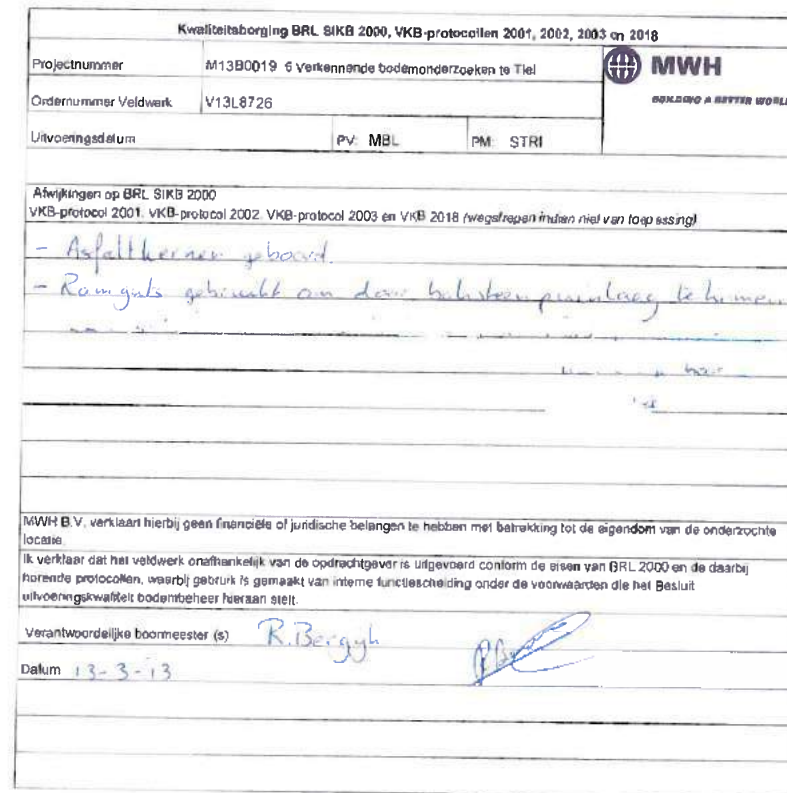 Kwaliteitsborging BRL SIKB 2000, VKB-protocollen 2001, 2002, 2003 en 2018
Projectnummer M13B0019 6 Verkennende bodemonderzoeken te Tiel
MWH
BUILDING A BETTER WORLD
Ordernummer Veldwerk V13L8726
Uitvoeringsdatum PV: MBL PM: STRI
Afwijkingen op BRL SIKB 2000
VKB-protocol 2001, VKB-protocol 2002, VKB-protocol 2003 en VKB 2018 (wegstrepen indien niet van toepassing)
- Asfaltkernen geboord.
- Ramguts gebruikt om door baksteenpuinlaag te komen
MWH B.V. verklaart hierbij geen financiële of juridische belangen te hebben met betrekking tot de eigendom van de onderzochte
locatie.
Ik verklaar dat het veldwerk onafhankelijk van de opdrachtgever is uitgevoerd conform de eisen van BRL 2000 en de daarbij
horende protocollen, waarbij gebruik is gemaakt van interne functiescheiding onder de voorwaarden die het Besluit
uitvoeringskwaliteit bodembeheer hieraan stelt.
Verantwoordelijke boormeester (s) R.
Datum 13-3-13